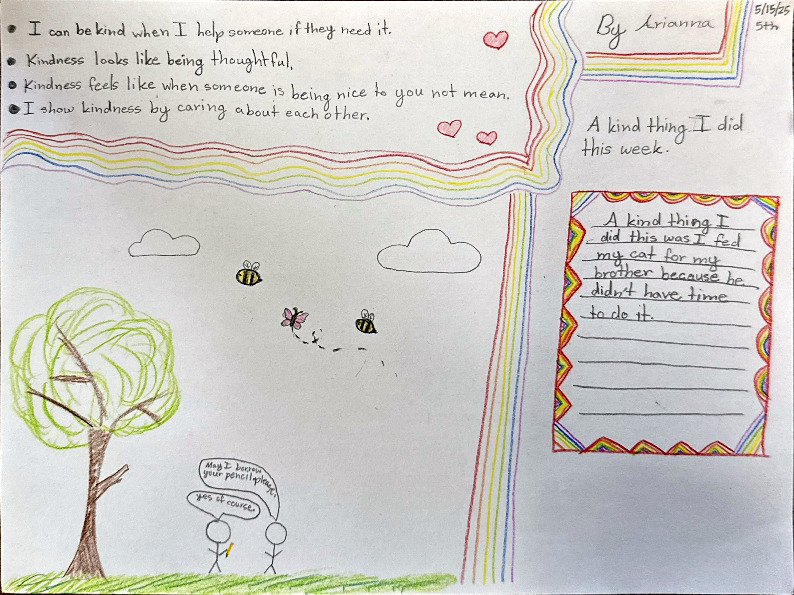 I can be kind when I help someone if they need it.
Kindness looks like being thoughtful.
Kindness feels like when someone is being nice to you not mean.
I show kindness by caring about each other.
By Arianna
5/15/25
5th
A kind thing I did
this week.
A kind thing I
did this was I fed
my cat for my
brother because he
didn't have time
to do it.
May I borrow
your pencil please.
yes of course.